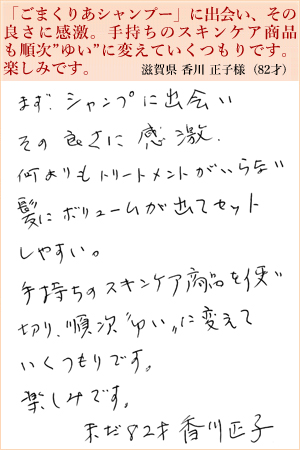 「ごまくりあシャンプー」に出会い、その
良さに感激。手持ちのスキンケア商品
も順次”ゆい”に変えていくつもりです。
楽しみです。
滋賀県 香川 正子様（82才）
まず シャンプに出会い
その良さに感激.
何よりもトリートメントがいらない
髪にボリュームが出てセット
しやすい。
手持ちのスキンケア商品を使い
切り、順次“ゆい„に変えて
いくつもりです。
楽しみです。
まだ82才 香川正子